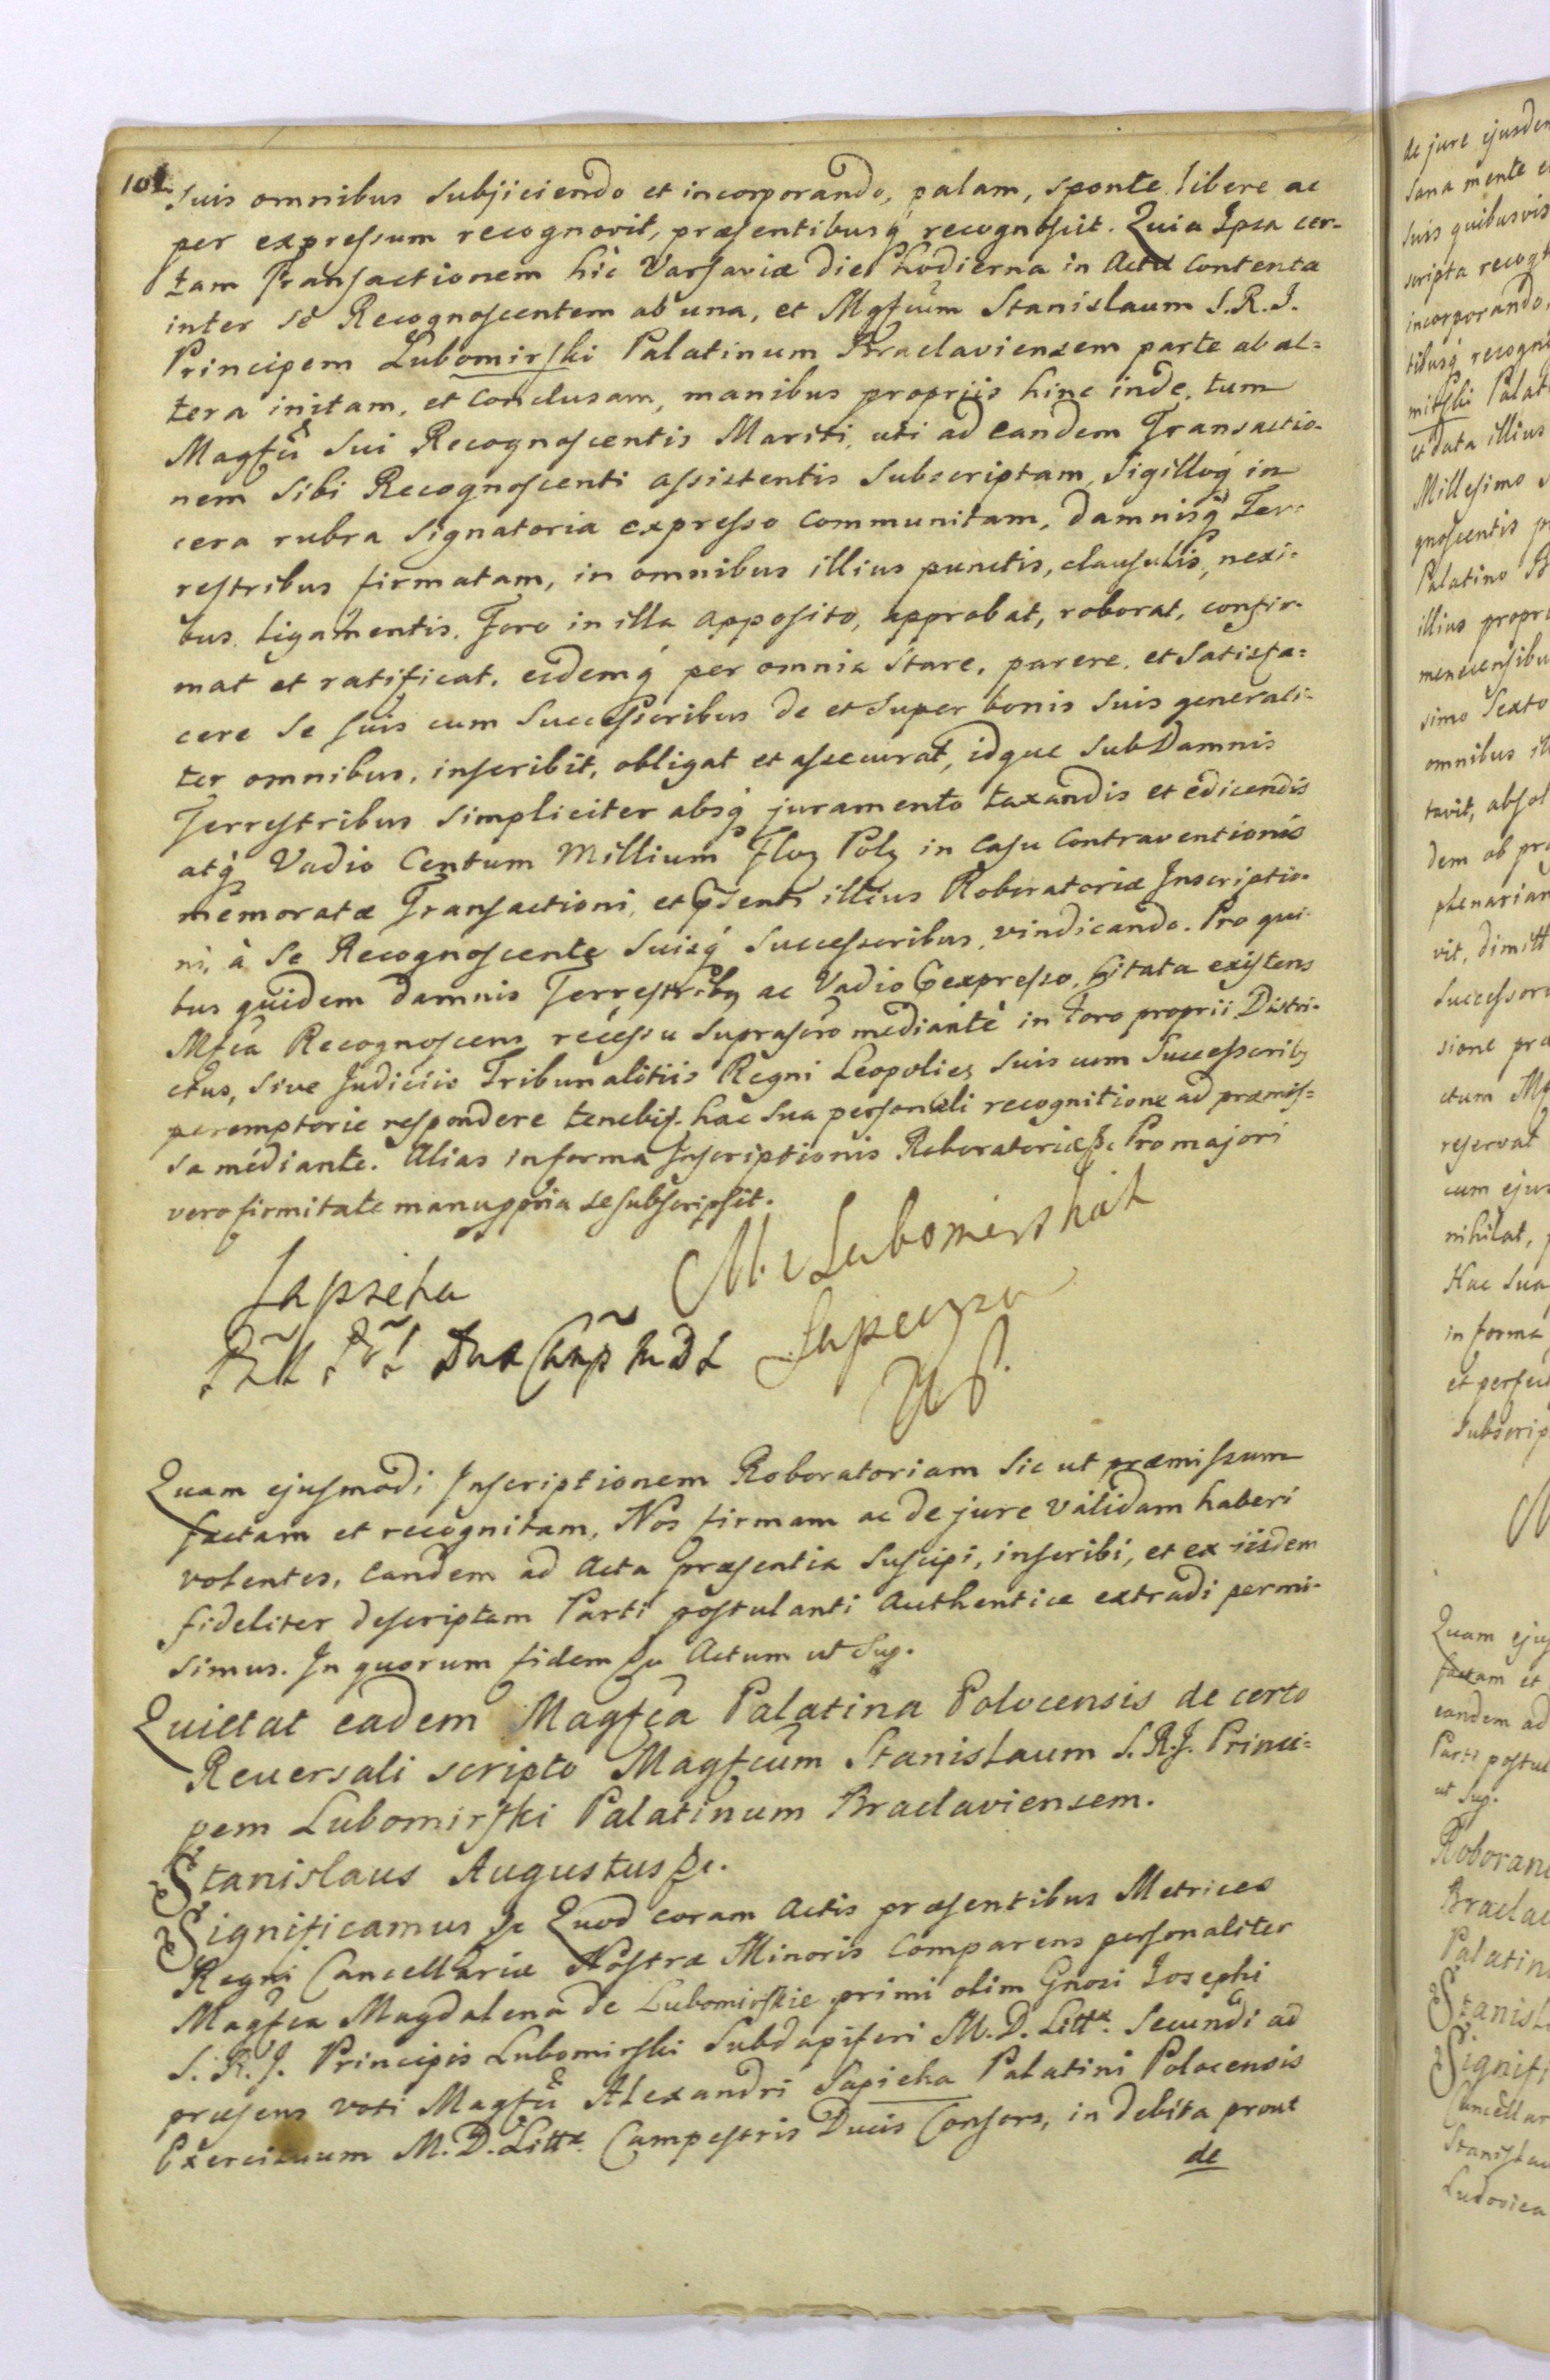 101.
suis omnibus subjiciendo et incorporando, palam, sponte libere ac
per expressum recognovit, præsentibusq́ recognoscit. Quia Ipsa cer-
tam Transactionem hic Varsaviæ die hodierna in Actu contenta
inter se Recognoscentem ab una, et Mgfcum Stanislaum S.R.I.
Principem Lubomirski Palatinum Braclaviensem parte ab al=
tera initam, et conclusam, manibus propriis hinc inde, tum
Magfci sui Recognoscentis Mariti, uti ad eandem Transactio-
nem sibi Recognoscenti assistentis subscriptam, sigilloq́ in
cera rubra signatoria expresso communitam, damnisq́ Ter-
restribus firmatam, in omnibus illius punctis, clausulis, nexi-
bus, ligamentis, Foro in illa apposito, approbat, roborat, confir-
mat et ratificat, eidemq́ per omnia stare, parere, et satisfa=
cere se suis cum Successoribus de et super bonis suis generali-
ter omnibus, inscribit, obligat et assecurat, idque sub Damnis
Terrestribus simpliciter absq́ juramento taxandis et edicendis
atq́ Vadio Centum Millium Floȝ Polȝ in Casu Contraventionis
memoratæ Transactioni, et pʳsenti illius Roboratoriæ Inscriptio-
ni, à se Recognoscente suisq́ Successoribus, vindicando. Pro qui-
bus quidem damnis Terrestribȝ ac Vadio pexpresso, Citata existens
Mfca Recognoscens recessu suprascro mediante in foro proprii Distri-
ctus, sive Judiciis Tribunalitiis Regni Leopolieȝ suis cum Successoribȝ
peremptorie respondere tenebiʳ. hac sua personali recognitione ad præmis=
sa mediante. Alias in forma Inscriptionis Roboratoriæ &c. Pro majori
vero firmitate manu ppria se subscripsit.
Sapieha
M. z Lubomirskich
Sapieżyna
WP.
Quam ejusmodi Inscriptionem Roboratoriam sic ut præmissum
factam et recognitam, Nos firmam ac de jure validam haberi
volentes, eandem ad Acta præsentia suscipi, inscribi, et ex iisdem
fideliter descriptam Parti postulanti Authentice extradi permi-
simus. In quorum fidem &c Actum ut Sup.
Quietat eadem Magfca Palatina Polocensis de certo
Reversali scripto Magfcum Stanislaum S.R.I. Princi=
pem Lubomirski Palatinum Braclaviensem.
Stanislaus Augustus &c.
Significamus &c Quod coram Actis præsentibus Metrices
Regni Cancellariæ Nostræ Minoris Comparens personaliter
Magfca Magdalena de Lubomirskie primi olim Gnosi Josephi
S.R.I. Principis Lubomirski Subdapiferi M.D. Littæ. Secundi ad
præsens voti Magfci Alexandri Sapieha Palatini Polocensis
Exercituum M.D. Littæ. Campestris Ducis Consors, in debita prout
de